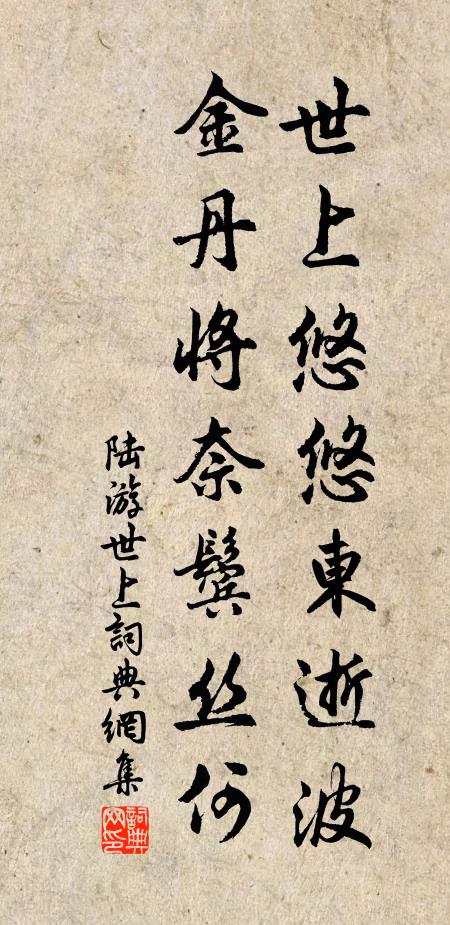 世上悠悠東逝波
金丹將奈鬓丝何
陆游世上詞典網集
詞典网印